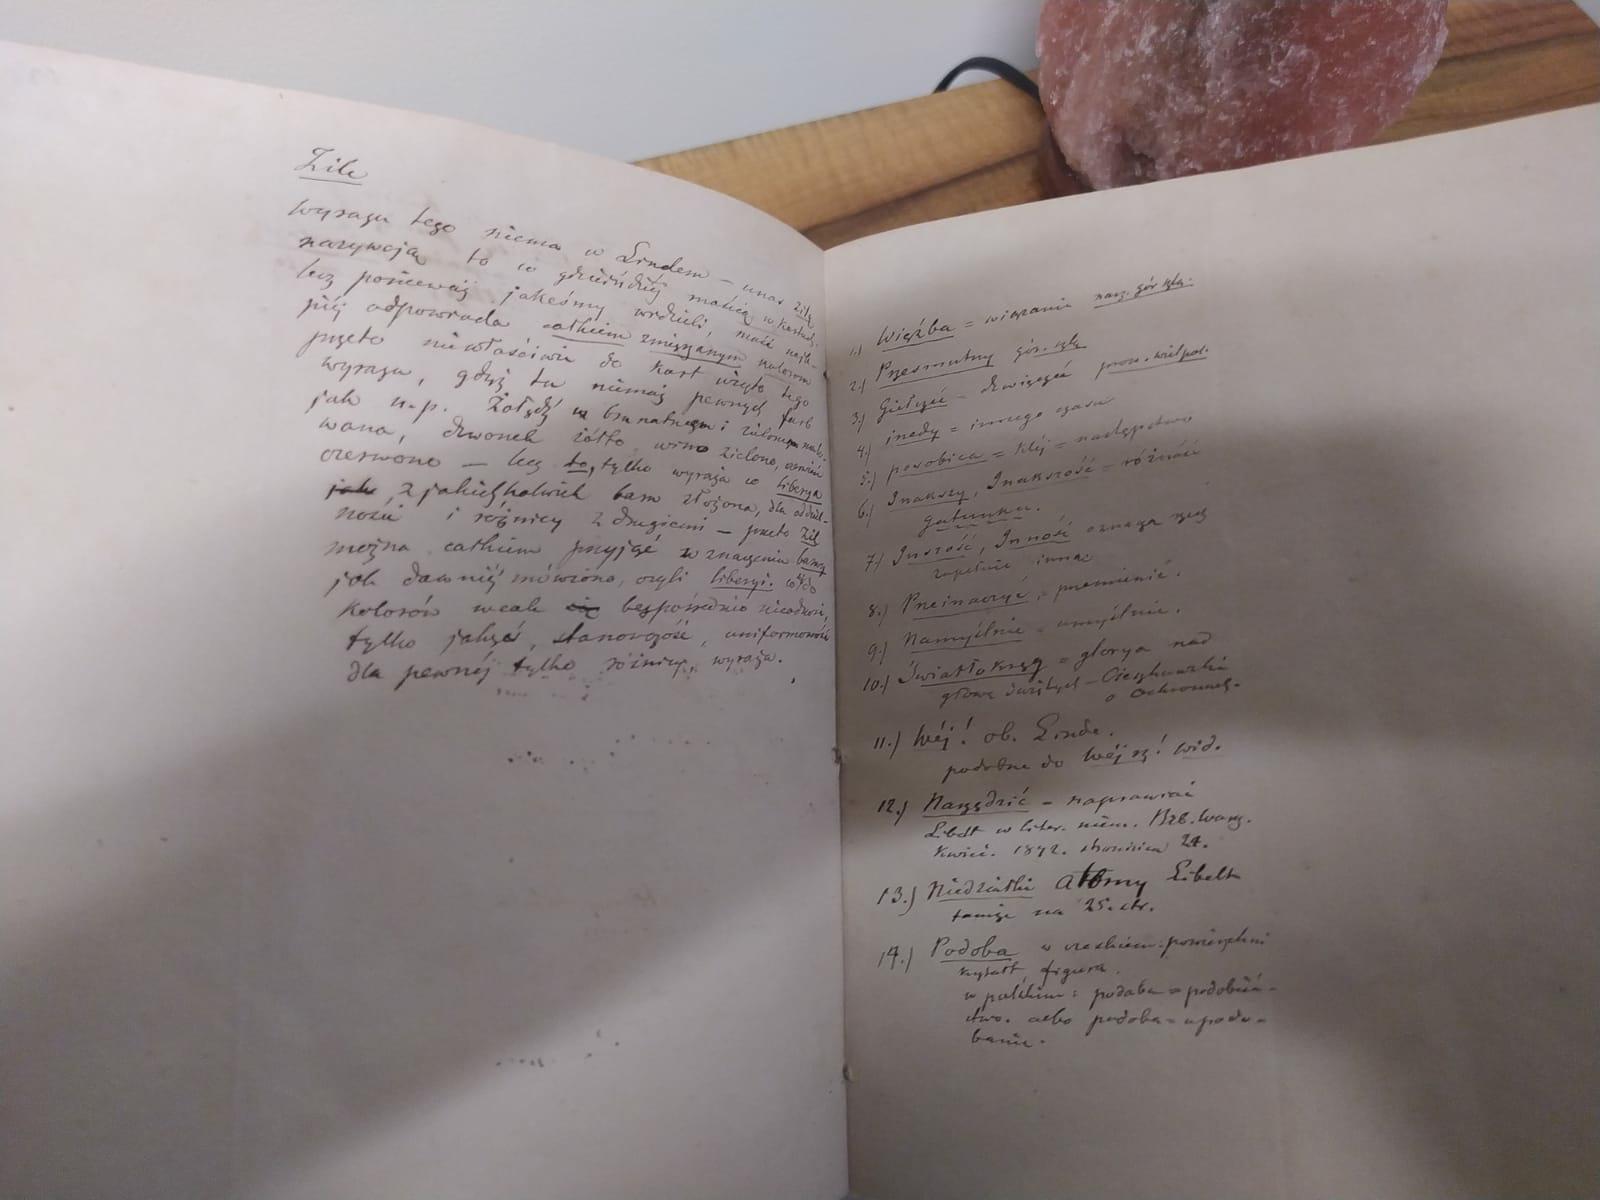 Zile
Wyrazu tego niema w Lindem – unas zile
nazywają to w maścią w kartach,
lecz ponieważ jakeśmy widzieli, maść
odpowiada całkiem zmięszanym kolorom
przeto niewłaściwie do kart użyto tego
wyrazu, gdyż tu niemasz pewnych farb
jak n.p. Żołędź brunatnem i zielonem
wana, dzwonek żółto, wino zielono, czerwień
czerwono – lecz to, tylko wyraża w liberya
jak z jakichkolwiek barw złożona, dla
ności i różnicy z drugiemi – przeto Zil
można całkiem przyjąć w znaczeniu barwy
jak dawniéj mówiono, czyli liberyi. co do
kolorów wcale się bezpośrednio
tylko jakąś, stanowczość, uniformowość
dla pewnéj tylko różnicy, wyraża.
1.) Więźba = wiązanie nar. gór szlą.
2.) Przesmutny gór. szlą
3.) Giełczyć – dzwięczeć prow. wielpol.
4.) inedy = innego czasu
5.) posobica = kléj = następstwo
6.) Inakszy, Inakszość = różność
gatunku.
7.) Inszość, Inność oznacza rzecz
zupełnie inną
8.) Przeinaczyć = przemienić.
9.) Namyślnie – umyślnie.
10.) Światłokrąg = glorya nad
głową świętych – Cieszkowski
o Ochronach.
11.) Wéj! ob. Linde.
podobne do Wéj są! wid.
12.) Narządzić – naprawiać
Libelt w liter. niem. Bib. Warsz.
Kwiec. 1842. stronica 24.
13.) Niedziałki atomy Libelt
tamże na 25. str.
14.) Podoba w czeskiem powierzchni
kształt, figura.
w polskiem: podoba = podobień-
stwo. albo podoba = upodo-
banie.